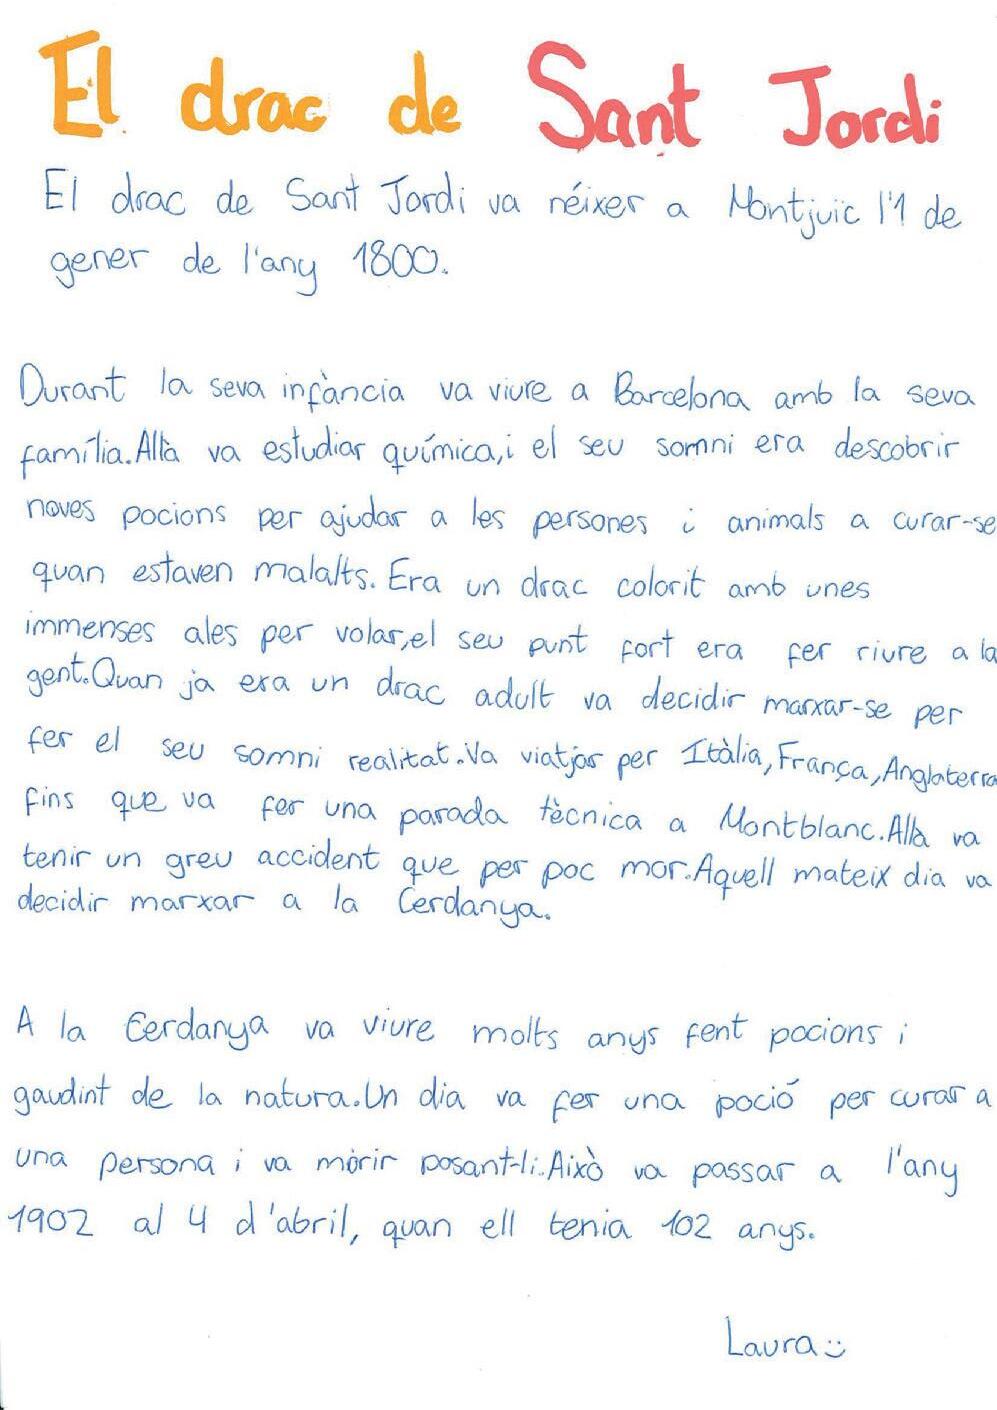 El drac de Sant Jordi
El drac de Sant Jordi va néixer a Montjuïc l'1 de
gener de l'any 1800.
Durant la seva infància va viure a Barcelona amb la seva
família. Allà va estudiar química, i el seu somni era descobrir
noves pocions per ajudar a les persones i animals a curar-se
quan estaven malalts. Era un drac colorit amb unes
immenses ales per volar, el seu punt fort era fer riure a la
gent. Quan ja era un drac adult va decidir marxar-se per
fer el seu somni realitat. Va viatjar per Itàlia, França, Anglaterra
fins que va fer una parada tècnica a Montblanc. Allà va
tenir un greu accident que per poc mor. Aquell mateix dia va
decidir marxar a la Cerdanya.
A la Cerdanya va viure molts anys fent pocions i
gaudint de la natura. Un dia va fer una poció per curar a
una persona i va mòrir posant-li. Això va passar a l'any
1902 al 4 d'abril, quan ell tenia 102 anys.
Laura :)